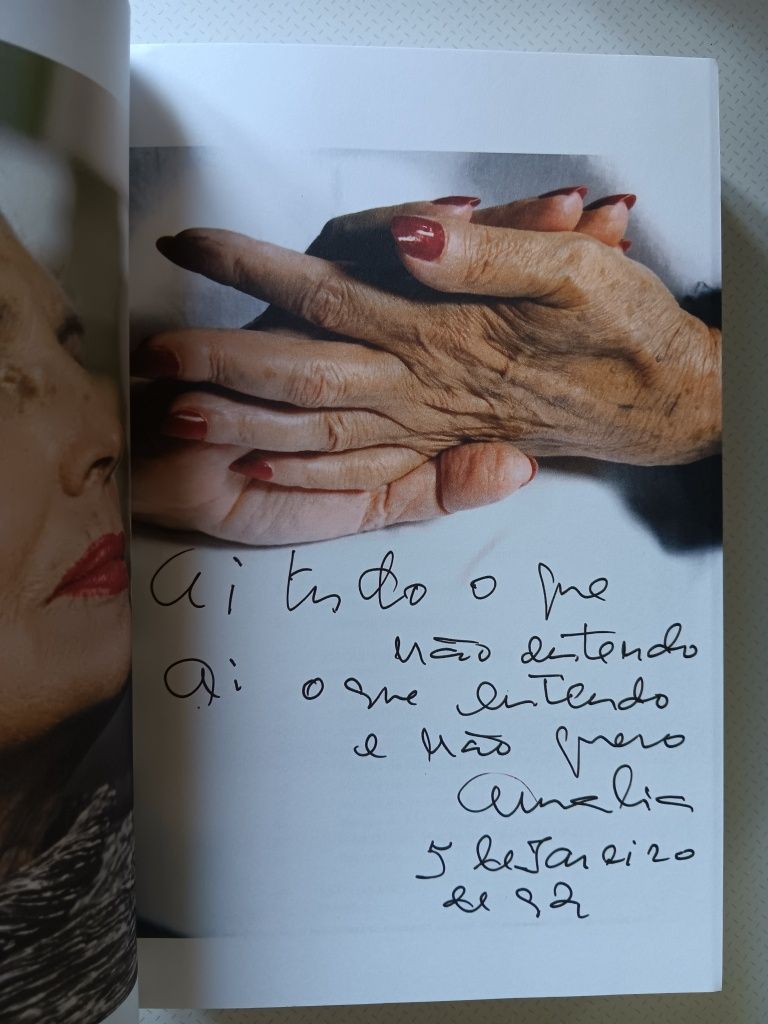 Ai tudo o que
não entendo
Ai o que entendo
e não quero
Amalia
5 de Janeiro
de 92